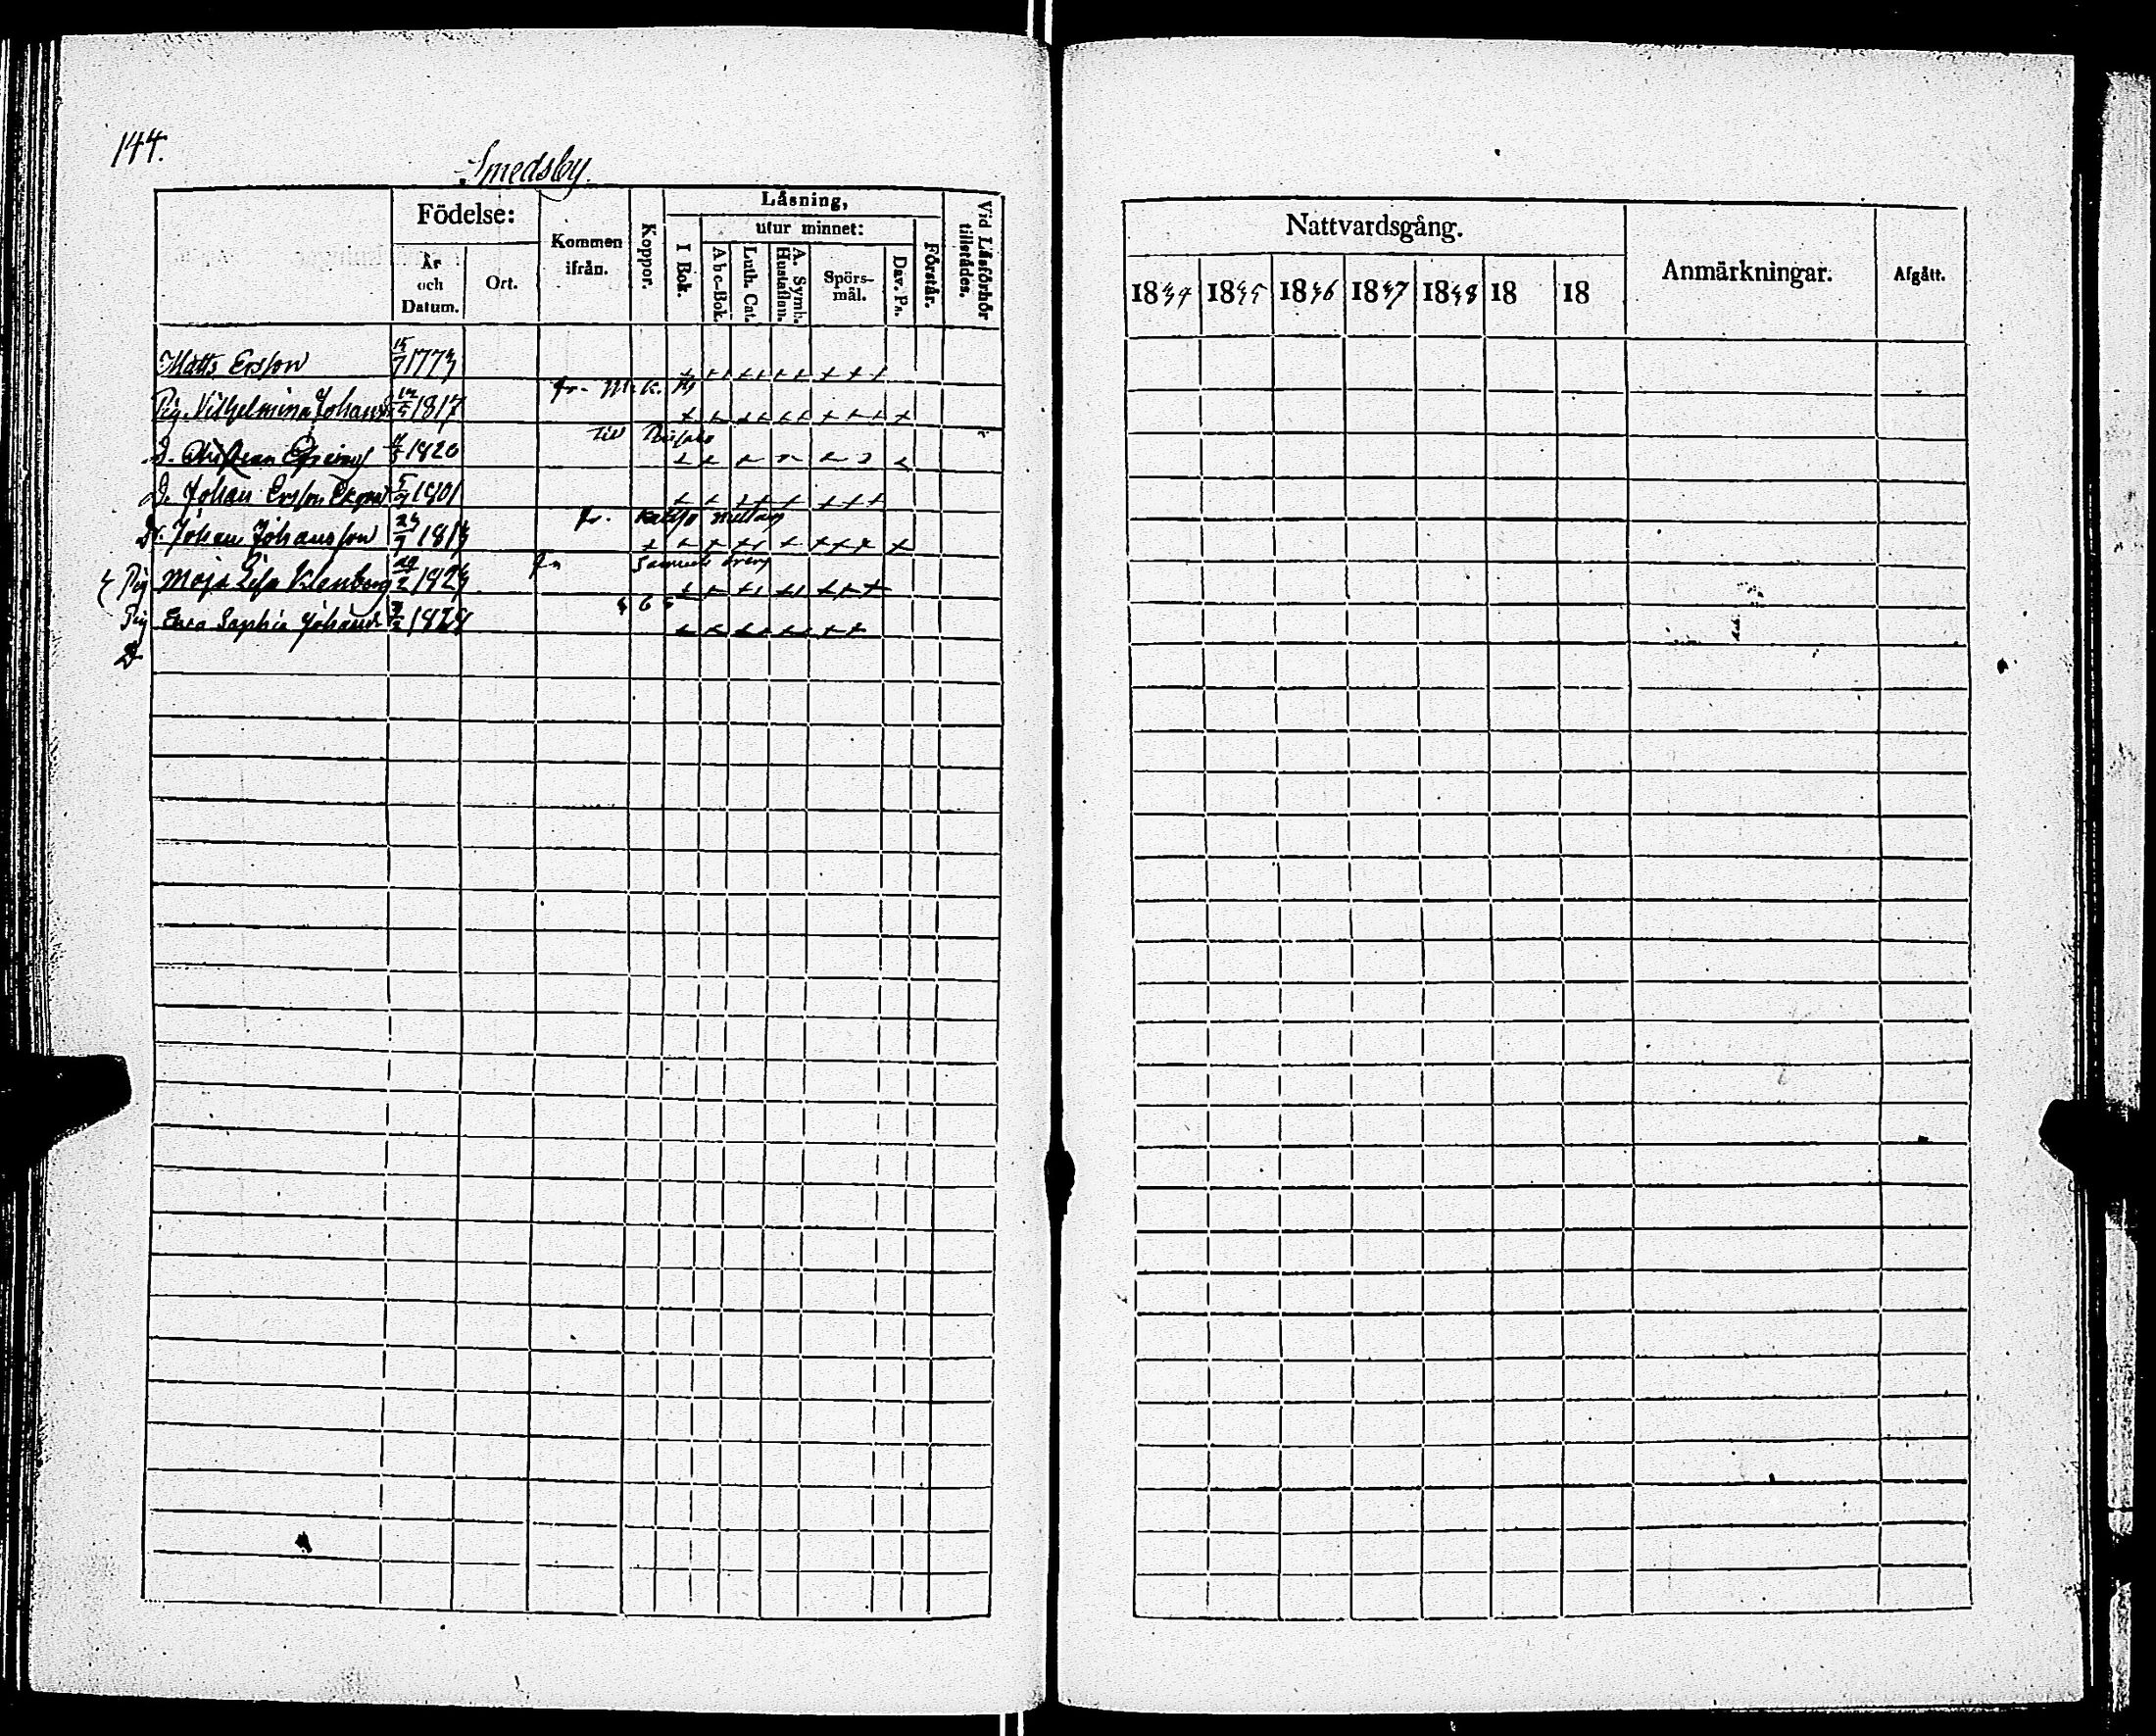 144.
Smedsby.
Födelse:
År och Datum.
Ort.
Kommen ifrån.
Koppor.
Läsning,
I Bok.
utur minnet:
Abc-Bok.
Luth. Cat.
A. Symb. Hustaflan.
Spörs-mål.
Dav. Ps.
Förstår.
Vid Läsförhör tillstådes.
Matts Ersson 15/7 1774
fr.
Pig. Vilhelmina Johansd 12/5 1817
Till
D. 1820
D. Johan Ersson 5/9 1801
fr.
Dr. Johan Johansson 24/7 1814
fr Samuels
Pig Maja Lisa Klenberg 29/2 1824
Pig Eva Sophia Johansd 3/2 1828
D
Nattvardsgång.
1844 1845 1846 1847 1848 18 18
Anmärkningar.
Afgått.